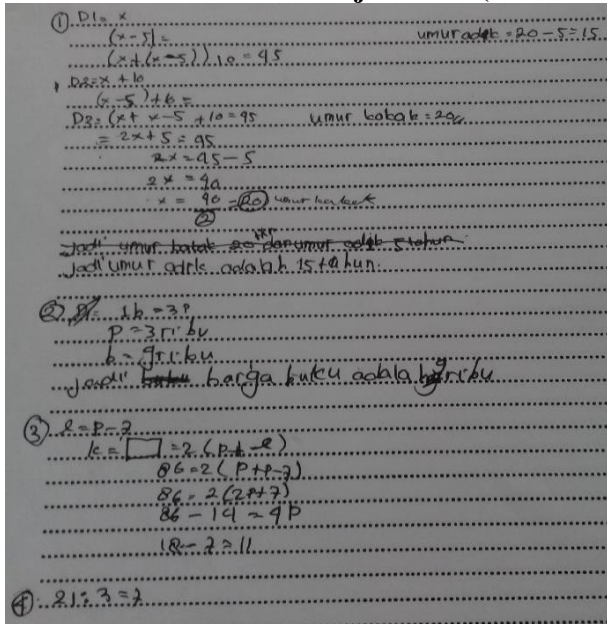 ① D1 = x
(x-5) =
umur adek = 20 - 5 = 15
(x+(x-5)) 10 = 45
D2 = x + 10
(x-5)+6 =
D3 = (x + x-5 +10 = 45 umur kakak = 20
= 2x+5 = 45
2x = 45-5
2x = 40
x = 40 = 20 umur kakak
2
Jadi umur kakak 20 dan umur adek 5 tahun
Jadi umur adik adalah 15 tahun.
② 1b = 3p
p = 3 ribu
b = 9 ribu
Jadi harga buku adala 9 ribu
③ l = p-7
k = □ = 2 (p+l)
86 = 2 (p+p-7)
86 = 2 (2p+7)
86 - 14 = 4p
18 - 7 = 11
④ 21 : 3 = 7